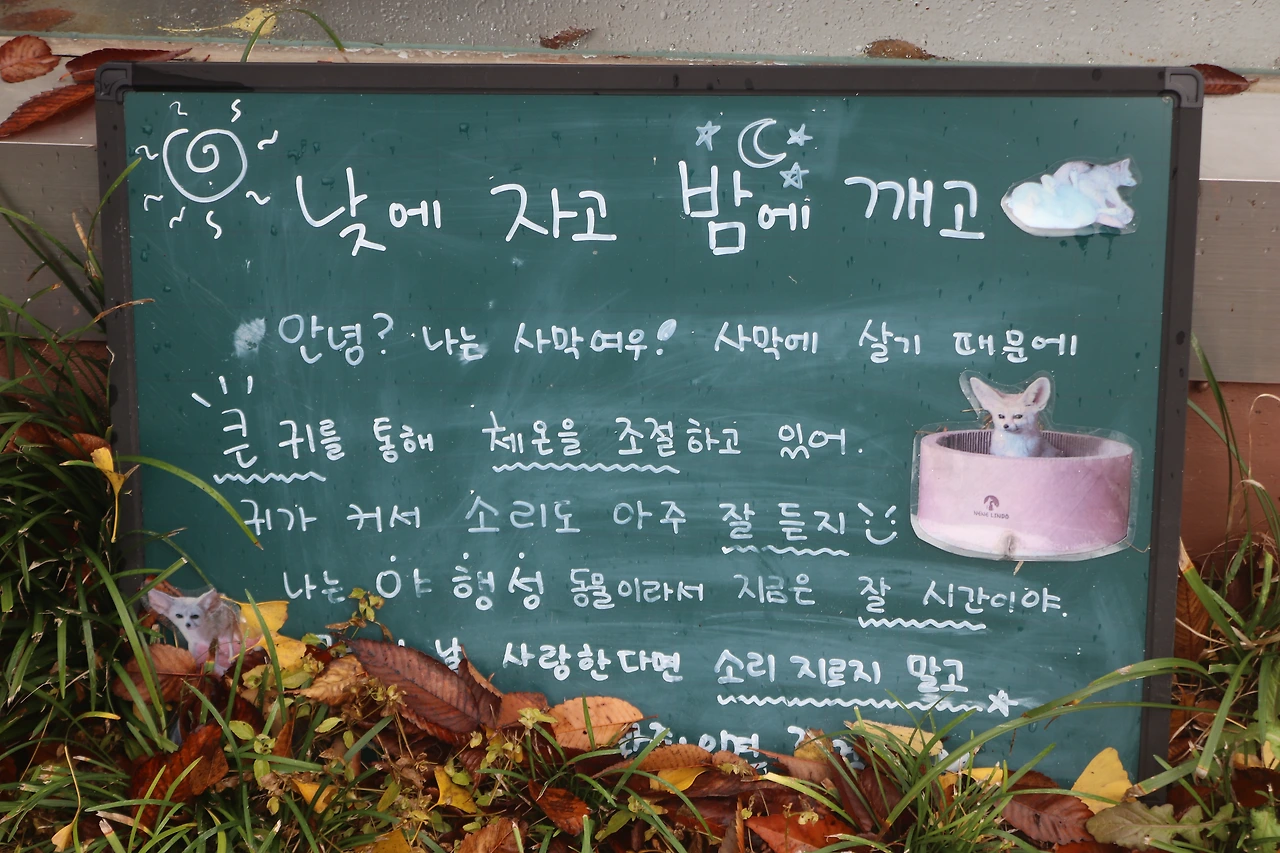 낮에 자고 밤에 깨고
안녕? 나는 사막여우! 사막에 살기 때문에
큰 귀를 통해 체온을 조절하고 있어.
귀가 커서 소리도 아주 잘 듣지
나는 야행성 동물이라서 지금은 잘 시간이야.
날 사랑한다면 소리 지르지 말고